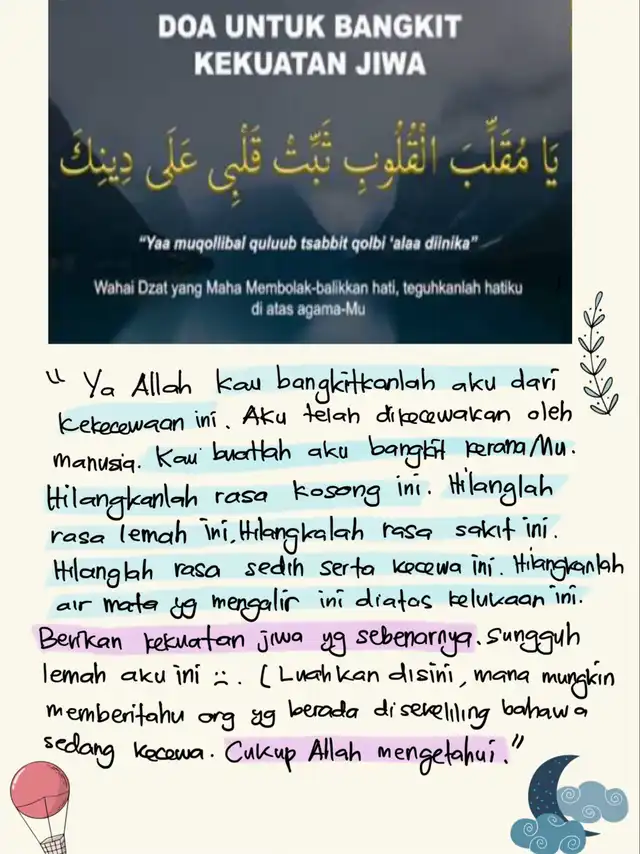 DOA UNTUK BANGKIT
KEKUATAN JIWA
يَا مُقَلِّبَ الْقُلُوبِ ثَبِّتْ قَلْبِي عَلَى دِينِكَ
“Yaa muqollibal quluub tsabbit qolbi ‘alaa diinika”
Wahai Dzat yang Maha Membolak-balikkan hati, teguhkanlah hatiku
di atas agama-Mu
“ Ya Allah kau bangkitkanlah aku dari
kekecewaan ini. Aku telah dikecewakan oleh
manusia. Kau buatlah aku bangkit keranaMu.
Hilangkanlah rasa kosong ini. Hilanglah
rasa lemah ini, Hilangkalah rasa sakit ini.
Hilanglah rasa sedih serta kecewa ini. Hilangkanlah
air mata yg mengalir ini diatas kelukaan ini.
Berikan kekuatan jiwa yg sebenarnya. Sungguh
lemah aku ini :(. (Luahkan disini, mana mungkin
memberitahu org yg berada disekeliling bahawa
sedang kecewa. Cukup Allah mengetahui.”